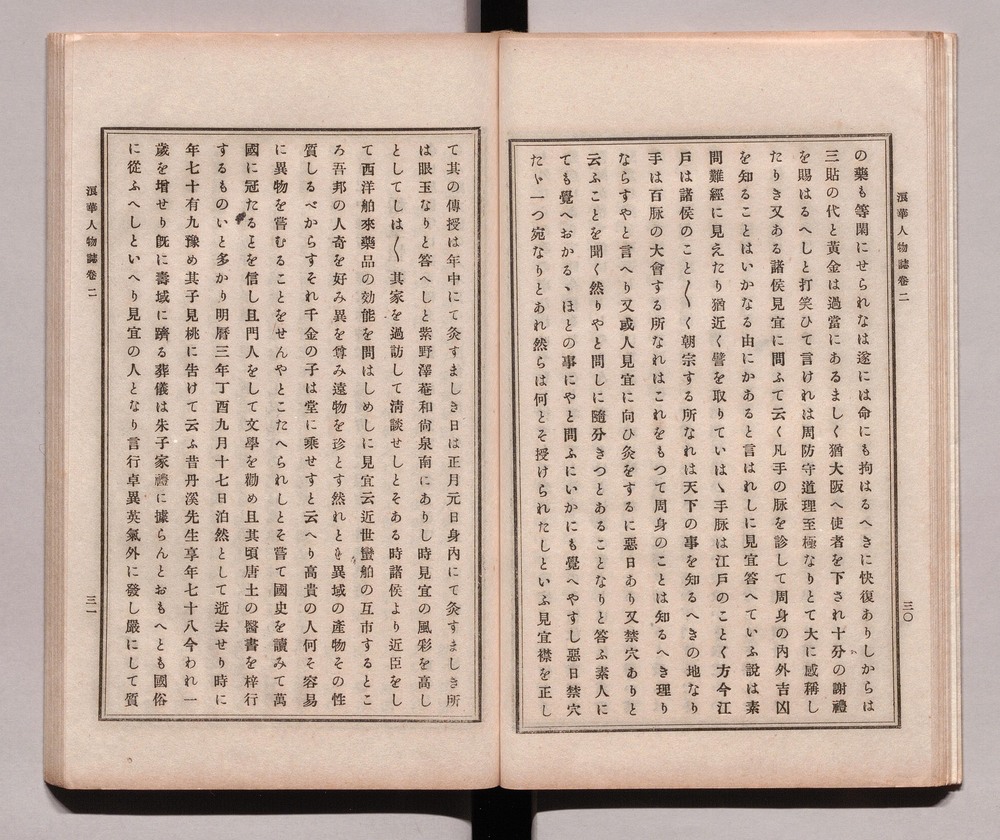 浪華人物誌卷二
三〇
の藥も等閑にせられなは遂には命にも拘はるへきに快復ありしからは
三貼の代と黄金は過當にあるましく猶大阪へ使者を下され十分の謝禮
を賜はるへしと打笑ひて言けれは周防守道理至極なりとて大に感稱し
たりき又ある諸侯見宜に問ふて云く凡手の脉を診して周身の內外吉凶
を知ることはいかなる由にかあると言はれしに見宜答へていふ說は素
問難經に見えたり猶近く譬を取りていはヽ手脉は江戸のことく方今江
戸は諸侯のこと〱く朝宗する所なれは天下の事を知るへきの地なり
手は百脉の大會する所なれはこれをもつて周身のことは知るへき理り
ならすやと言へり又或人見宜に向ひ灸をするに惡日あり又禁穴ありと
云ふことを聞く然りやと問しに隨分きつとあることなりと答ふ素人に
ても覺へおかるヽほとの事にやと問ふにいかにも覺へやすし惡日禁穴
たヽ一つ宛なりとあれ然らは何とそ授けられたしといふ見宜襟を正し
て其の傳授は年中にて灸すましき日は正月元日身內にて灸すましき所
は眼玉なりと答へしと紫野澤菴和尙泉南にありし時見宜の風彩を高し
としてしは〱其家を過訪して淸談せしとそある時諸侯より近臣をし
て西洋舶來藥品の効能を問はしめしに見宜云近世蠻舶の互市するとこ
ろ吾邦の人奇を好み異を尊み遠物を珍とす然れとも異域の產物その性
質しるべからすそれ千金の子は堂に乘せすと云へり高貴の人何そ容易
に異物を嘗むることをせんやとこたへられしとそ嘗て國史を讀みて萬
國に冠たるとを信し且門人をして文學を勸め且其頃唐土の醫書を梓行
するものいと多かり明曆三年丁酉九月十七日泊然として逝去せり時に
年七十有九豫め其子見桃に告けて云ふ昔丹溪先生享年七十八今われ一
歲を增せり旣に壽域に躋る葬儀は朱子家禮に據らんとおもへとも國俗
に從ふへしといへり見宜の人となり言行卓異英氣外に發し嚴にして質
浪華人物誌卷二
三一